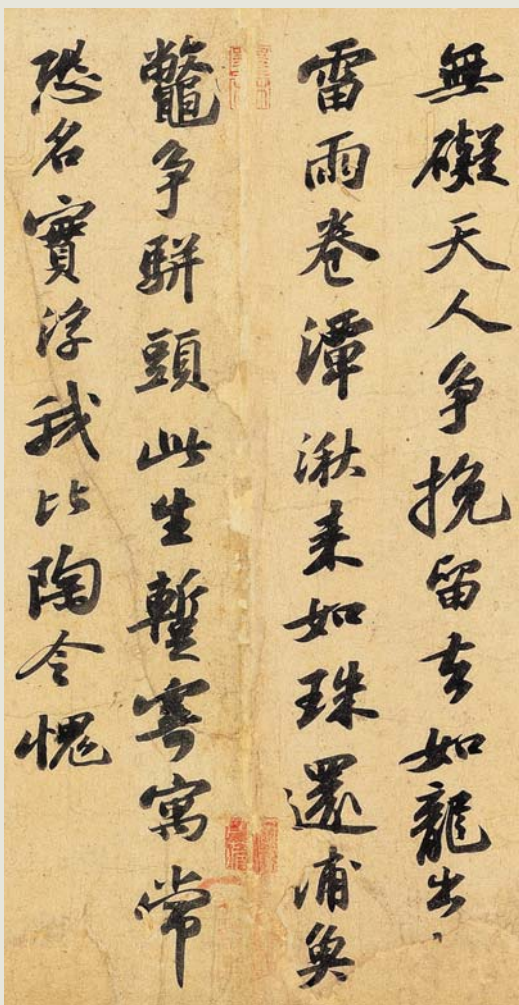 無礙天人争挽留去如龍出、
雷雨卷潭湫来如珠還浦魚
鼈争駢頭此生蹔寄寓常
恐名實浮我比陶令愧